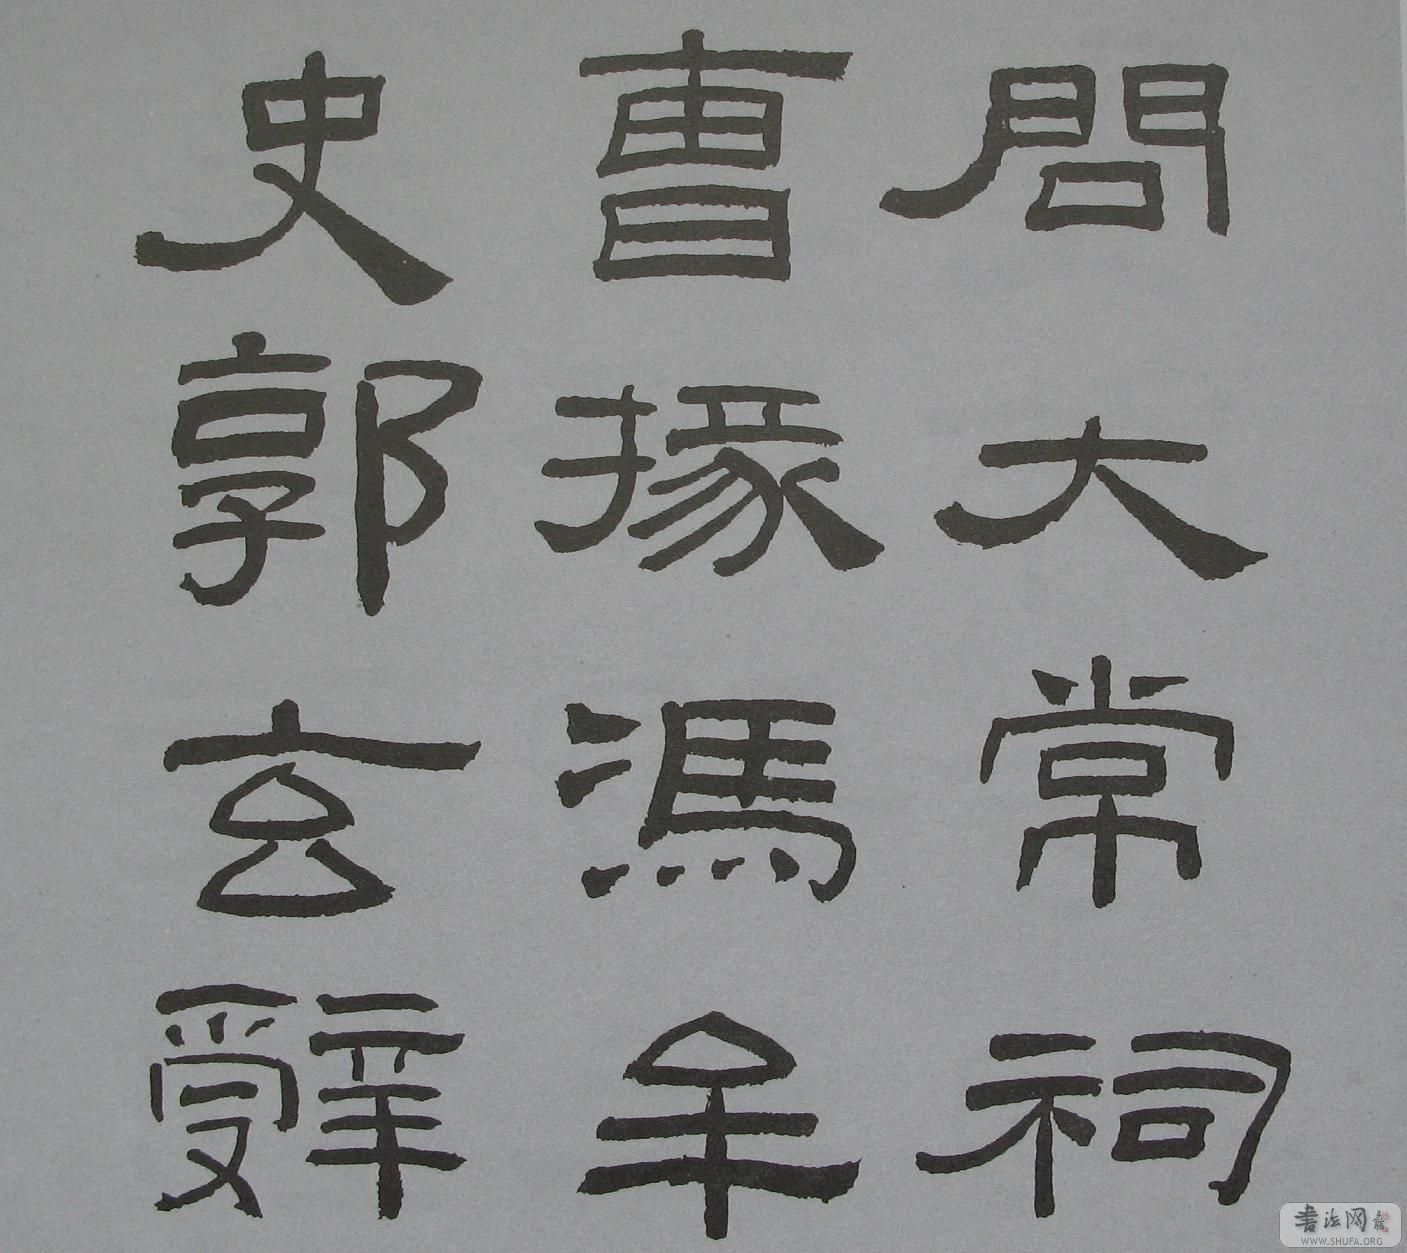 問大常祠
曹掾馮牟
史郭玄辭
書法网
WWW.SHUFA.ORG